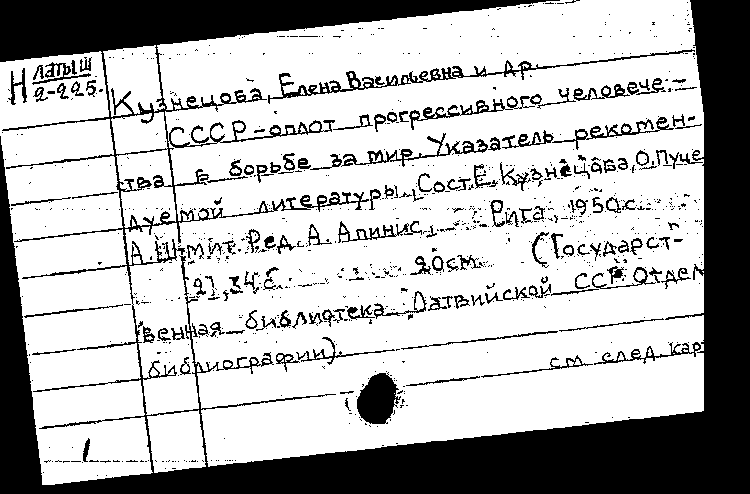 Н латыш
2-225.
Кузнецова, Елена Васильевна и др.
СССР-оплот прогрессивного человече-
ства в борьбе за мир. Указатель рекомен-
дуемой литературы., Сост. Е. Кузнецова, О. Пуце
А. Шмит. Ред. А. Апинис, Рига, 1950.
[2], 34 с. 20см. (Государст-
венная библиотека Латвийской ССР. Отдел
библиографии).
см след. кар
1